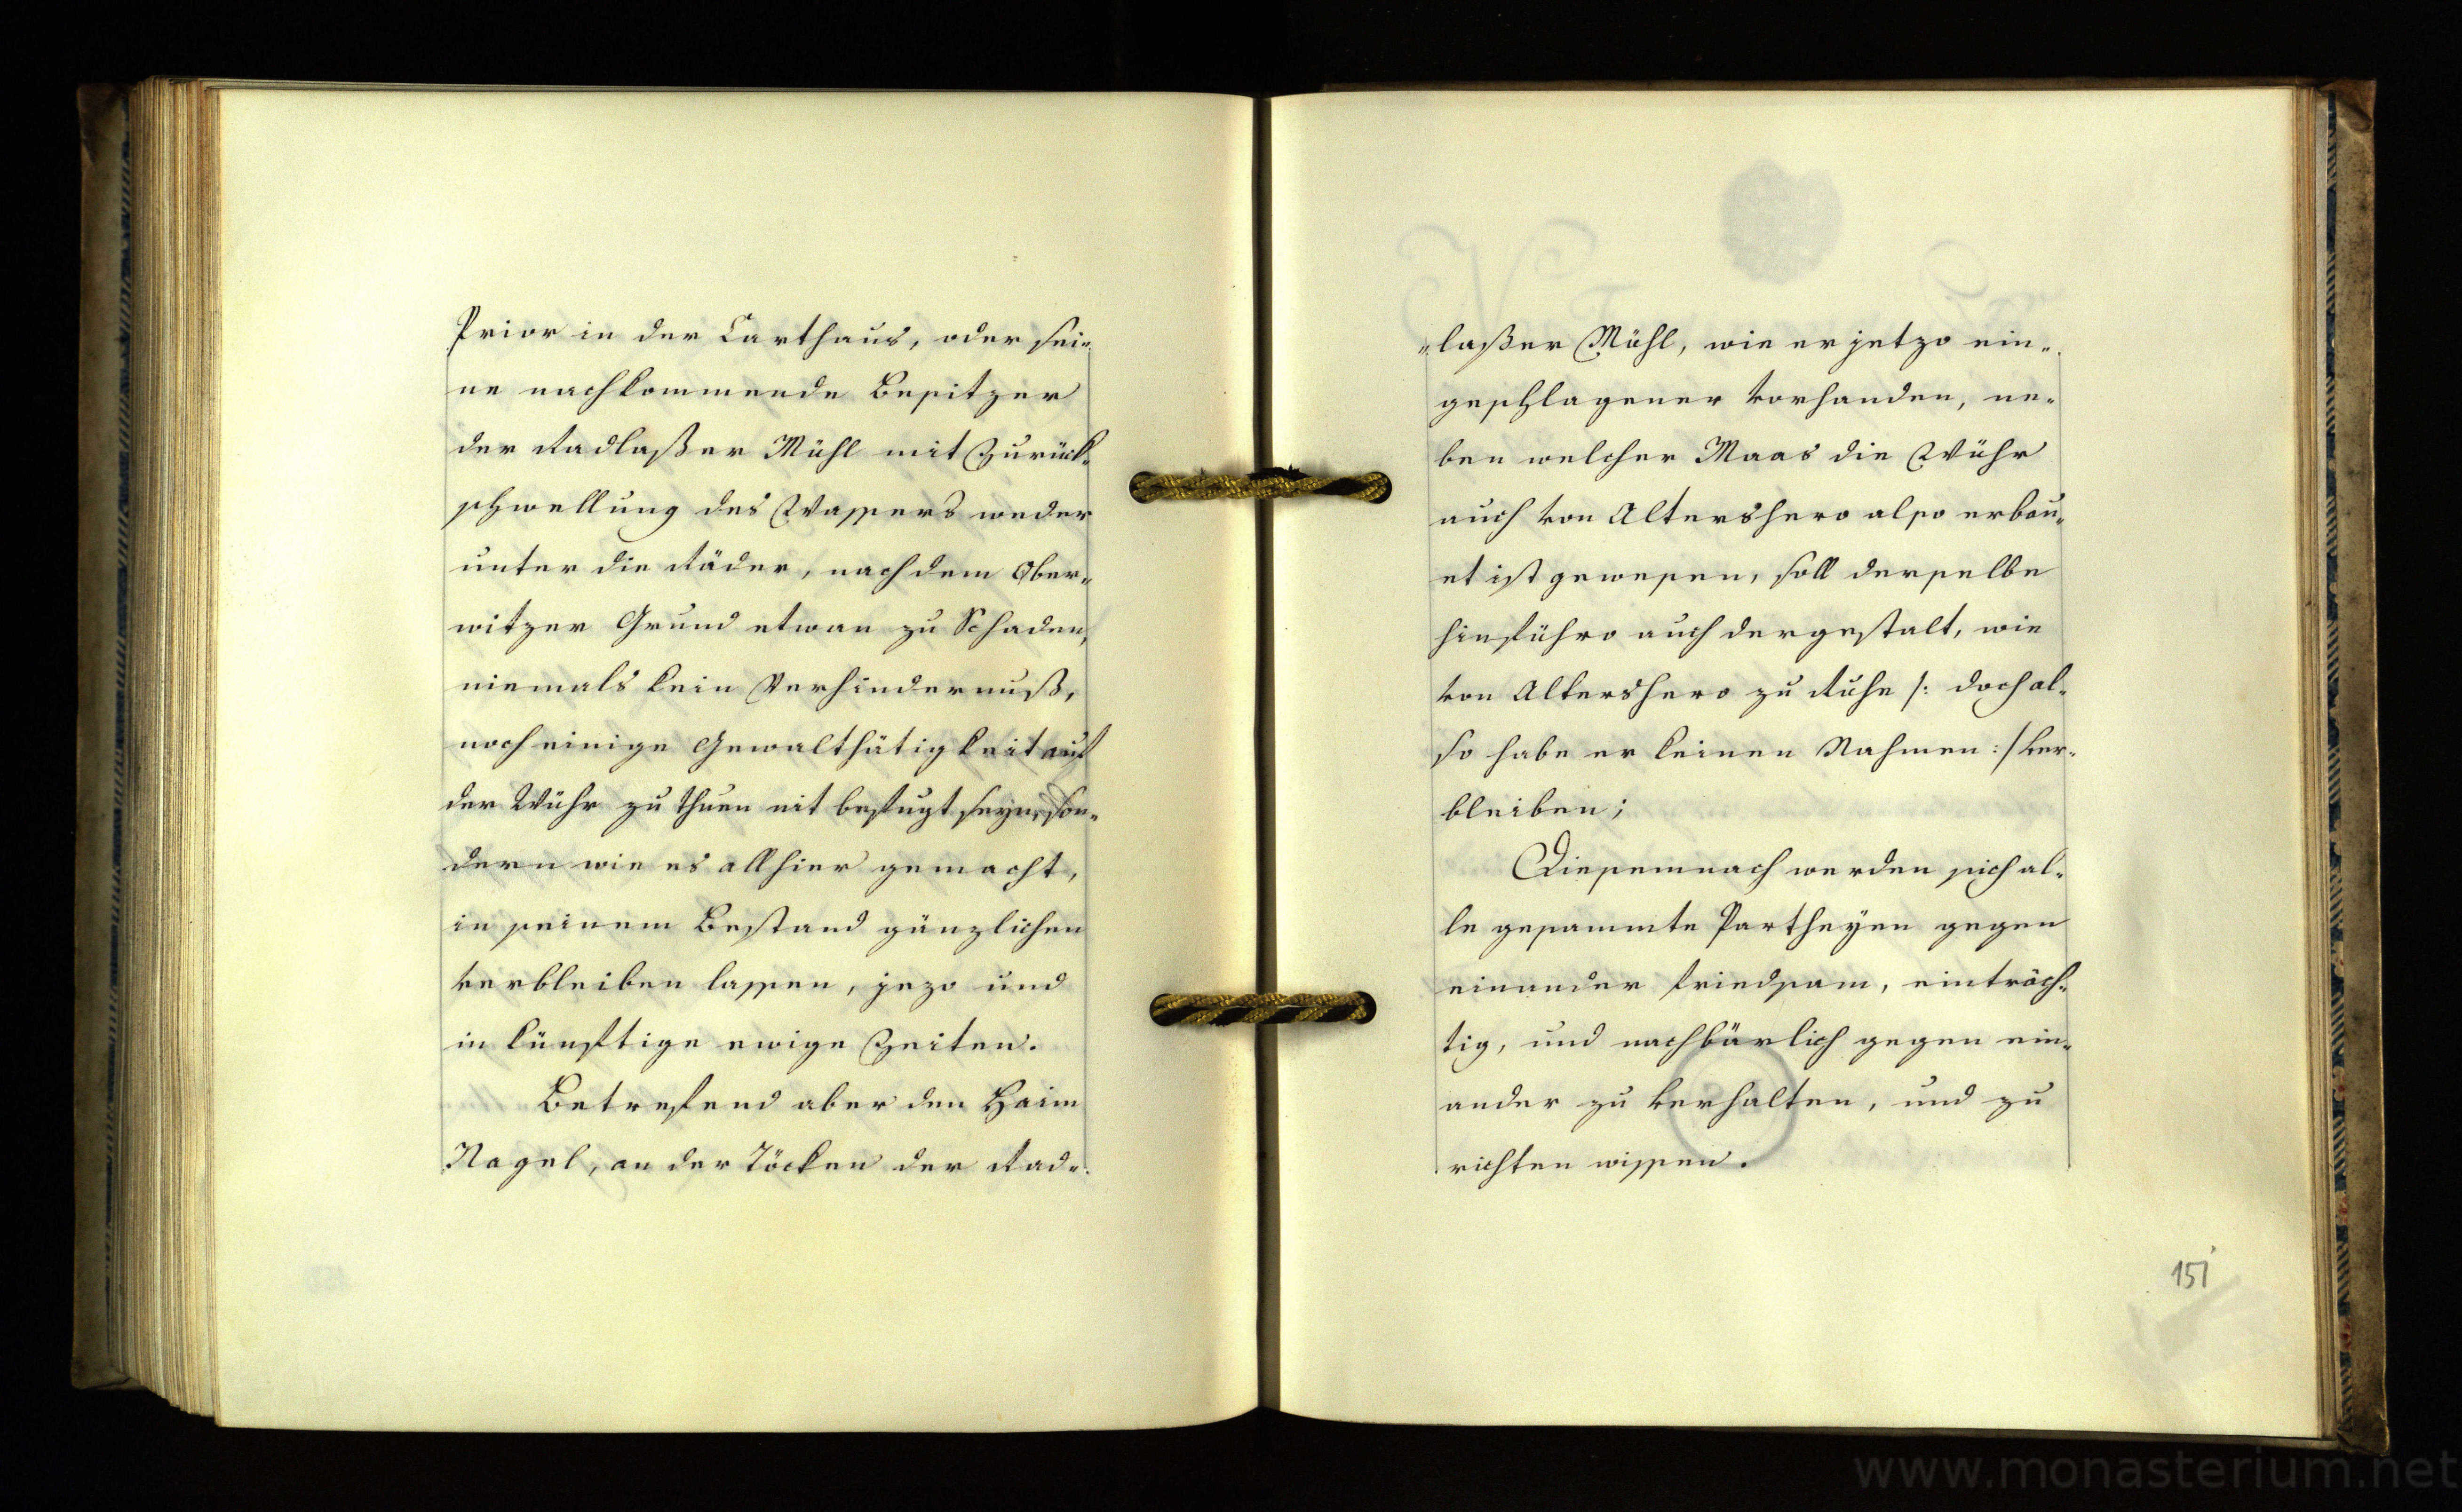 Prior in der Carthaus, oder sei„
ne nachkommende Besitzer
der Radlaßer Mühl mit Zurück„
schwellung des Wassers weder
unter die Räder, nach dem Ober„
witzer Grund etwan zu Schaden,
niemals kein Verhindernuß,
noch einige Gewalthätigkeit auf
der Wühr zu thuen nit befugt seyn, son„
dern wie es allhier gemacht,
in seinem Bestand gänzlichen
verbleiben lassen, jezo und
in künftige ewige Zeiten.
Betrefend aber den Haim
Nagel, an der Töcken der Rad„
„laßer Mühl, wie er jetzo ein„
geschlagener vorhanden, ne„
ben welcher Maas die Wühr
auch von Altershero also erbau„
et ist gewesen, soll derselbe
hinführo auch dergestalt, wie
von Altershero zu Ruhe /: doch al„
so habe er keinen Nahmen :/ ver„
bleiben;
Diesemnach werden sich al„
le gesammte Partheyen gegen
einander friedsam, einträch„
tig, und nachbärlich gegen ein„
ander zu verhalten, und zu
richten wissen.
151
www.monasterium.net